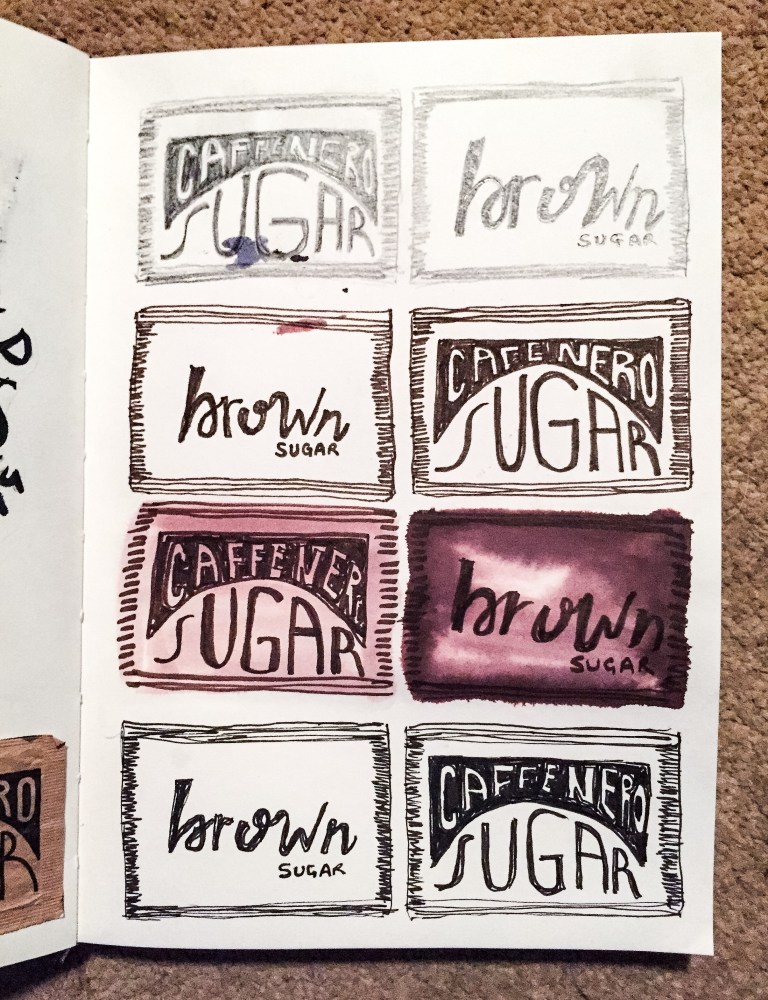 CAFFE NERO
SUGAR
brown
SUGAR
brown
SUGAR
CAFE NERO
SUGAR
CAFFE NER
SUGAR
brown
SUGAR
brown
SUGAR
CAFFE NERO
SUGAR
RO
R